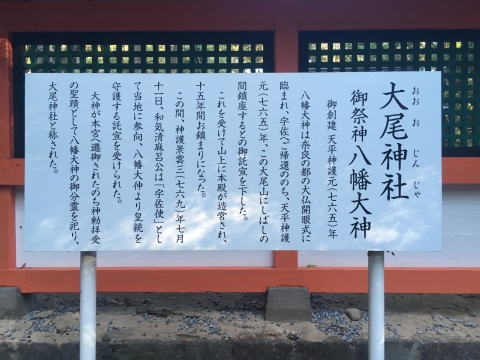 大尾神社
おおおじんじゃ
御祭神八幡大神
御創建 天平神護元(七六五)年
八幡大神は奈良の都の大仏開眼式に
臨まれ、宇佐へご帰還ののち、天平神護
元(七六五)年、この大尾山にしばしの
間鎮座するとの御託宣を下した。
これを受けて山上に本殿が造営され、
十五年間お鎮まりになった。
この間、神護景雲三(七六九)年七月
十一日、和気清麻呂公は「宇佐使」とし
て当地に参向、八幡大神より皇統を
守護する託宣を受けられた。
大神が本宮へ還御されたのち神勅拝受
の聖蹟として八幡大神の御分霊を祀り、
大尾神社と称された。